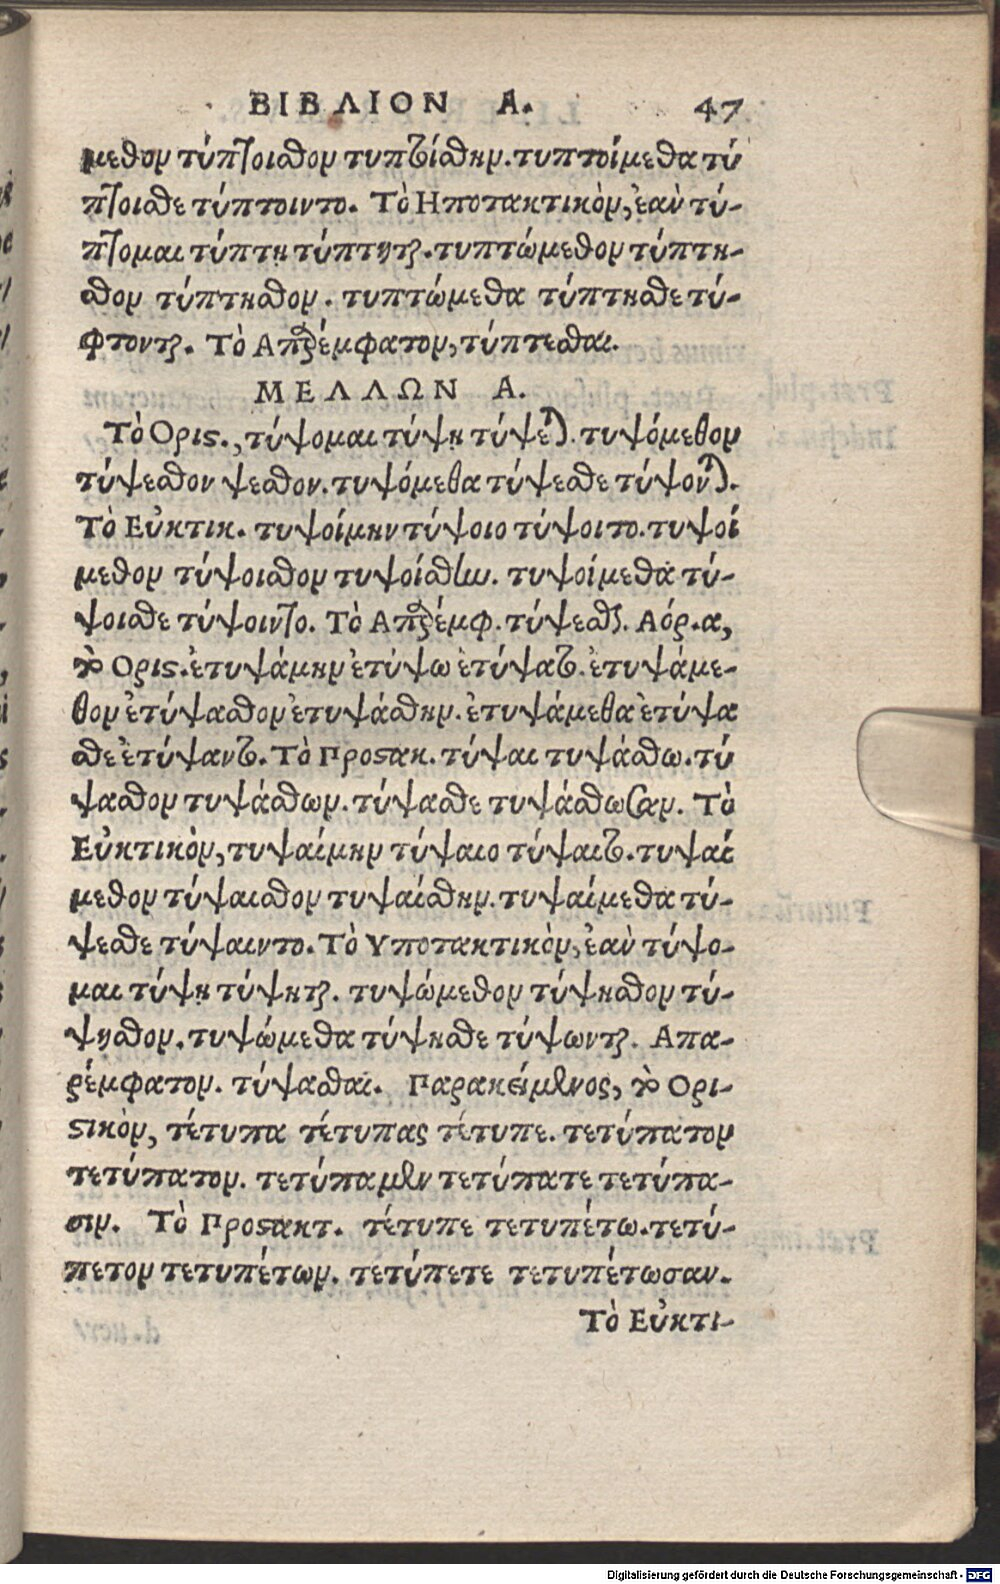 ΒΙΒΛΙΟΝ Α. 47
μεθον τύπτοισθον τυπτοίσθην. τυπτοίμεθα τύ
πτοισθε τύπτοιντο. Τὸ Ηποτακτικὸν, ἐαν τύ-
πτομαι τύπτη τύπτηται. τυπτώμεθον τύπτη-
σθον τύπτησθον. τυπτώμεθα τύπτησθε τύ-
φτονται. Τὸ Απαρέμφατον, τύπτεσθαι.
ΜΕΛΛΩΝ Α.
Τὸ Ορις., τύψομαι τύψη τύψεται. τυψόμεθον
τύψεσθον ψεσθον. τυψόμεθα τύψεσθε τύψονται.
Τὸ Εὐκτικ. τυψοίμην τύψοιο τύψοιτο. τυψοί
μεθον τύψοισθον τυψοίσθην. τυψοίμεθα τύ-
ψοισθε τύψοιντο. Τὸ Απαρέμφ. τύψεσθαι. Αόρ. α,
τὸ Ορις. ἐτυψάμην ἐτύψω ἐτύψατο. ἐτυψάμε-
θον ἐτύψασθον ἐτυψάσθην. ἐτυψάμεθα ἐτύψα
σθε ἐτύψαντο. Τὸ Προςακ. τύψαι τυψάσθω. τύ
ψασθον τυψάσθων. τύψασθε τυψάσθωσαν. Τὸ
Εὐκτικὸν, τυψαίμην τύψαιο τύψαιτο. τυψαί
μεθον τύψαισθον τυψαίσθην. τυψαίμεθα τύ-
ψεσθε τύψαιντο. Τὸ Υποτακτικὸν, ἐαν τύψο-
μαι τύψη τύψηται. τυψώμεθον τύψησθον τύ-
ψησθον. τυψώμεθα τύψησθε τύψωνται. Απα-
ρέμφατον. τύψασθαι. Παρακείμενος, τὸ Ορι-
ςικὸν, τέτυπα τέτυπας τέτυπε. τετύπατον
τετύπατον. τετύπαμεν τετύπατε τετύπα-
σιν. Τὸ Προςακτ. τέτυπε τετυπέτω. τετύ-
πετον τετυπέτων. τετύπετε τετυπέτωσαν.
Τὸ Εὐκτι-
Digitalisierung gefördert durch die Deutsche Forschungsgemeinschaft - DFG